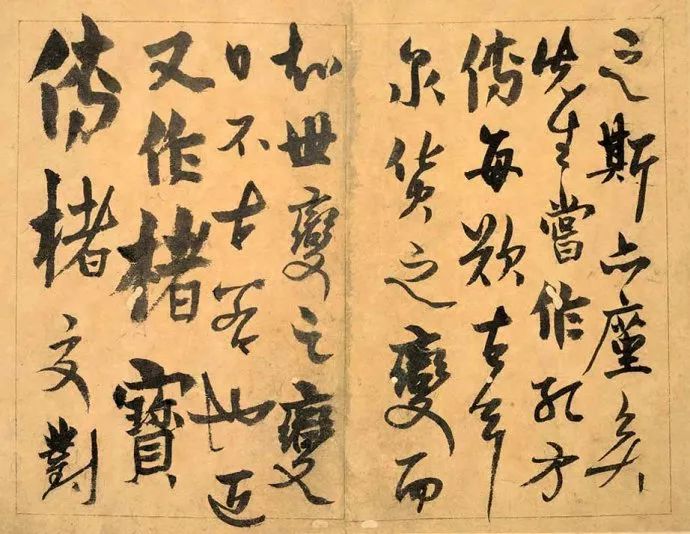 之斯亦座矣
先生嘗作孔方
傳每歎古今
泉貨之變而
知世變之變
日不古若也近
又作楮寶
傳楮交對